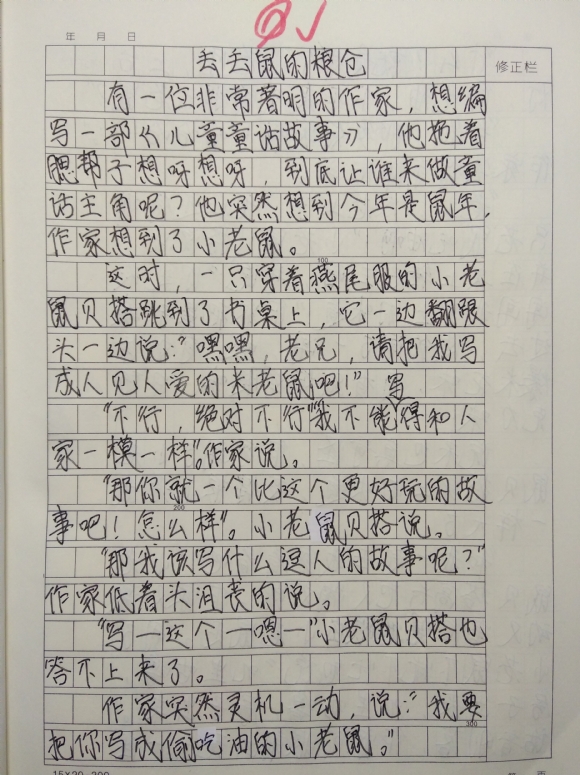 年 月 日
丢丢鼠的粮仓
修正栏
有一位非常著明的作家，想编
写一部《儿童童话故事》，他拖着
腮帮子想呀想呀，到底让谁来做童
话主角呢？他突然想到今年是鼠年，
作家想到了小老鼠。
100
这时，一只穿着燕尾服的小老
鼠贝搭跳到了书桌上，它一边翻跟
头一边说：“嘿嘿，老兄，请把我写
成人见人爱的米老鼠吧！”
写
“不行，绝对不行”我不能得和人
家一模一样”。作家说。
“那你就一个比这个更好玩的故
200
事吧！怎么样”。小老鼠贝搭说。
“那我该写什么逗人的故事呢？”
作家低着头沮丧的说。
“写一这个一嗯一”小老鼠贝搭也
答不上来了。
作家突然灵机一动，说：“我要
300
把你写成偷吃油的小老鼠。”
15×20=300